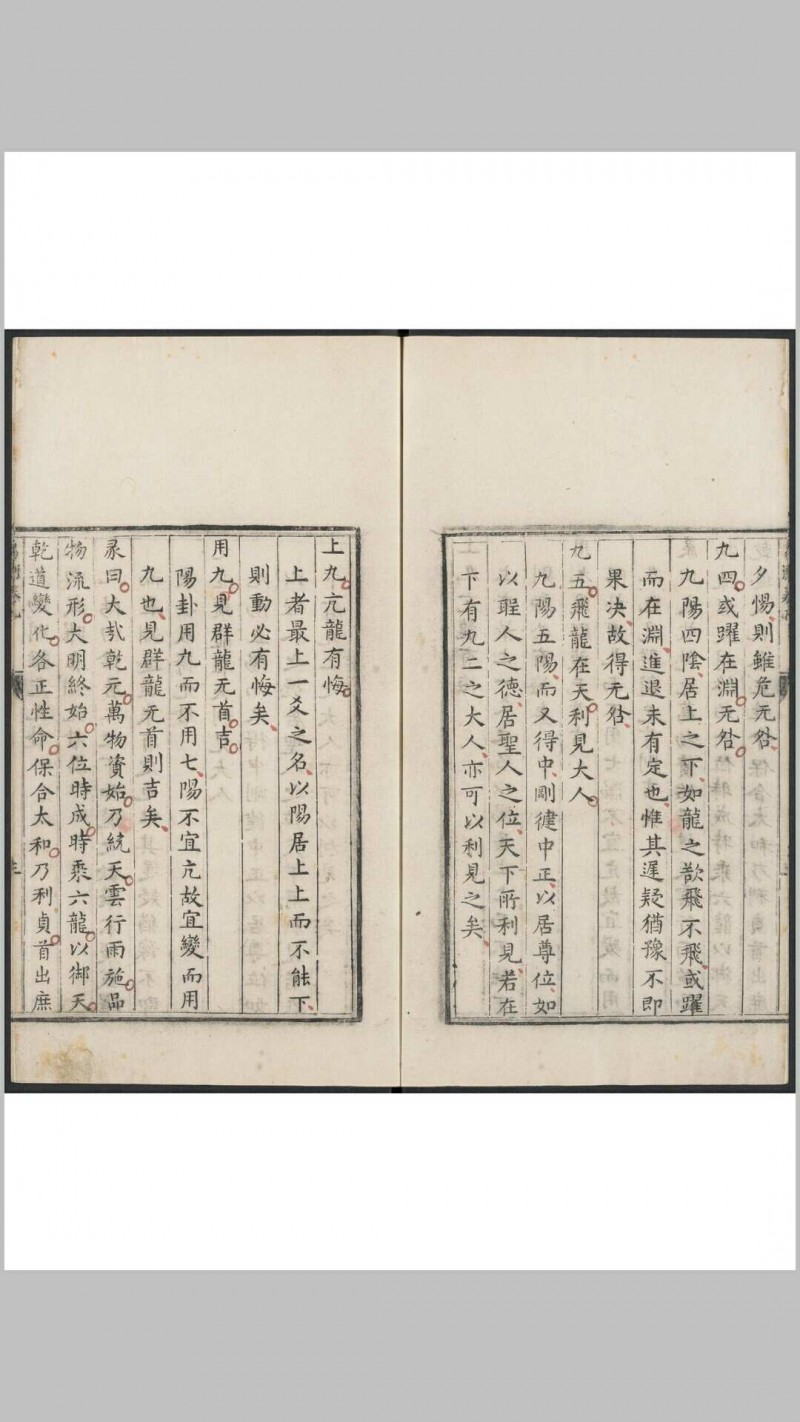 夕惕則雖危无咎
九四或躍在淵无咎
九陽四陰居上之下如龍之欲飛不飛或躍
而在淵進退未有定也惟其遲疑猶豫不即
果决故得无咎
九五飛龍在天利見大人
九陽五陽而又得中剛健中正以居尊位如
以聖人之德居聖人之位天下所利見若在
下有九二之大人亦可以利見之矣
上九亢龍有悔
上者最上一爻之名以陽居上上而不能下
則動必有悔矣
用九見群龍无首吉
陽卦用九而不用七陽不宜亢故宜變而用
九也見群龍无首則吉矣
彖曰大哉乾元萬物資始乃統天雲行雨施品
物流形大明終始六位時成時乘六龍以御天
乾道變化各正性命保合太和乃利貞首出庶